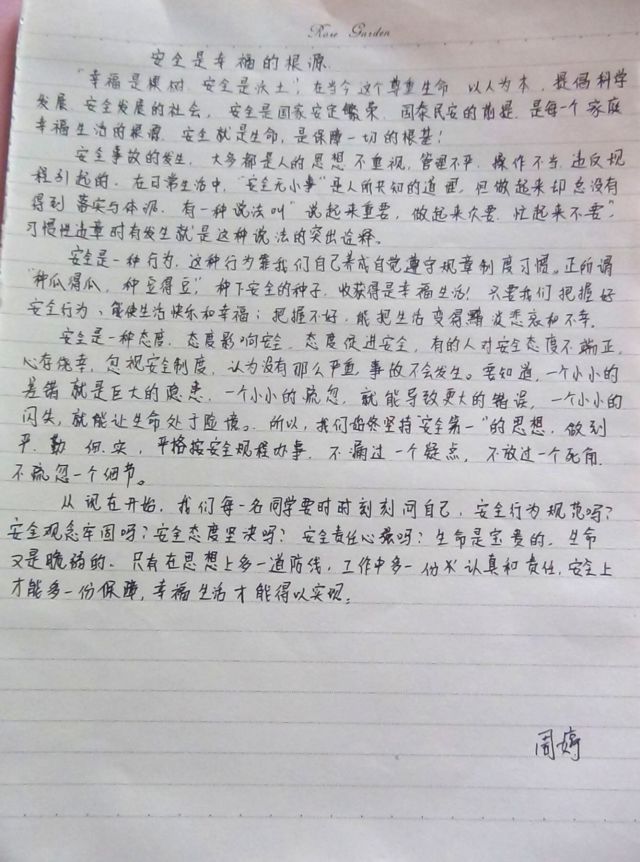 Rose Garden
安全是幸福的根源
"幸福是棵树,安全是沃土"。在当今这个尊重生命,以人为本,提倡科学
发展、安全发展的社会,安全是国家安定繁荣、国泰民安的前提,是每一个家庭
幸福生活的根源,安全就是生命,是保障一切的根基!
安全事故的发生,大多都是人的思想不重视,管理不严,操作不当,违反规
程引起的。在日常生活中,"安全无小事"是人所共知的道理,但做起来却总没有
得到落实与体现。有一种说法叫"说起来重要,做起来次要,忙起来不要",
习惯性违章时有发生就是这种说法的突出诠释。
安全是一种行为,这种行为靠我们自己养成自觉遵守规章制度习惯。正所谓
"种瓜得瓜,种豆得豆",种下安全的种子,收获得是幸福生活!只要我们把握好
安全行为,能使生活快乐和幸福;把握不好,能把生活变得黯淡悲哀和不幸。
安全是一种态度,态度影响安全,态度促进安全,有的人对安全态度不端正,
心存侥幸,忽视安全制度,认为没有那么严重,事故不会发生。要知道,一个小小的
差错就是巨大的隐患,一个小小的疏忽,就能导致更大的错误,一个小小的
闪失,就能让生命处于险境。所以,我们始终坚持"安全第一"的思想,做到
严、勤、细、实,严格按安全规程办事,不漏过一个疑点,不放过一个死角,
不疏忽一个细节。
从现在开始,我们每一名同学要时时刻刻问自己,安全行为规范吗?
安全观念牢固吗?安全态度坚决吗?安全责任心强吗?生命是宝贵的,生命
又是脆弱的。只有在思想上多一道防线,工作中多一份认真和责任,安全上
才能多一份保障,幸福生活才能得以实现。
周婷